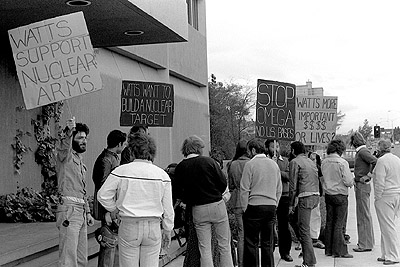 WATTS
SUPPORT
NUCLEAR
ARMS
WATTS WANT TO
BUILD A NUCLEAR
TARGET
STOP
OMEGA
NO U.S BASES
WATTS MORE
IMPORTANT
$$$$
OR LIVES?